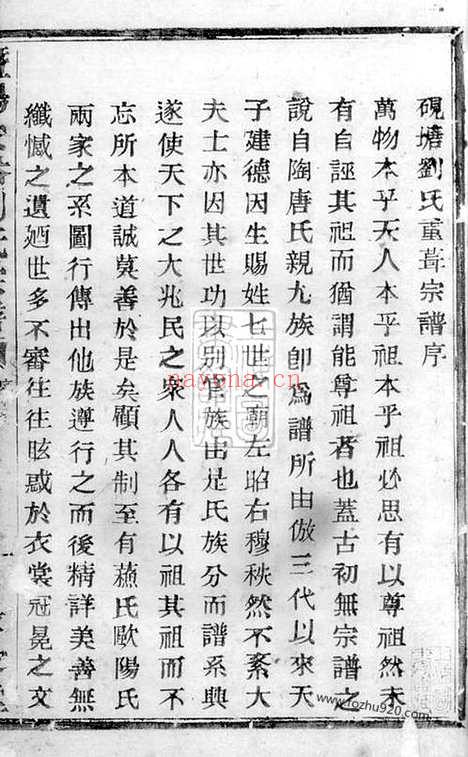 硯塘劉氏重葺宗譜序
萬物本乎天人本乎祖本乎祖必思有以尊祖然未
有自誣其祖而猶謂能尊祖者也蓋古初無宗譜之
說自陶唐氏親九族卽為譜所由倣三代以來天
子建德因生賜姓七世之廟左昭右穆秩然不紊大
夫士亦因其世功以別望族由是氏族分而譜系興
遂使天下之大兆民之眾人人各有以祖其祖而不
忘所本道誠莫善於是矣顧其制至有蘇氏歐陽氏
兩家之系圖行傳出他族遵行之而後精詳美善無
纖憾之遺廼世多不審往往眩惑於衣裳冠冕之文
nayona.cn
www.fozhu920.com